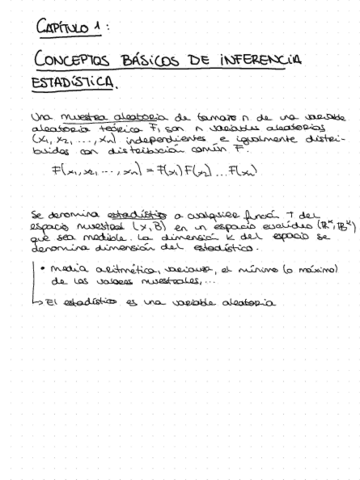 CAPÍTULO 1:
CONCEPTOS BÁSICOS DE INFERENCIA
ESTADÍSTICA.
Una muestra aleatoria de tamaño n de una variable
aleatoria teórica F, son n variables aleatorias
(x₁, x₂, ..., xₙ) independientes e igualmente distri-
buidas con distribución común F.
F(x₁, x₂, ..., xₙ) = F(x₁) F(x₂) ... F(xₙ)
Se denomina estadístico a cualquier función T del
espacio muestral (X, B) en un espacio euclídeo (ℝᵏ, Bᵏ)
que sea medible. La dimensión K del espacio se
denomina dimensión del estadístico.
• media aritmética, varianza, el mínimo (o máximo)
de los valores muestrales, ...
↳ El estadístico es una variable aleatoria